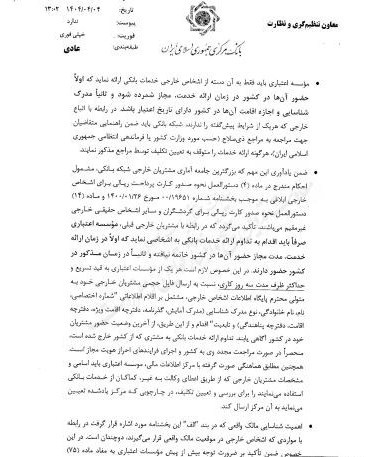 معاون تنظیم‌گری و نظارت
بانک مرکزی جمهوری اسلامی ایران
تاریخ: ۱۴۰۴/۰۴/۰۴ ۱۳:۰۲
پیوست: ندارد
فوریت: خیلی فوری
طبقه‌بندی: عادی
مؤسسه اعتباری باید فقط به آن دسته از اشخاص خارجی خدمات بانکی ارائه نماید که اولاً
حضور آن‌ها در کشور در زمان ارائه خدمت، مجاز شمرده شود و ثانیاً مدرک
شناسایی و اجازه اقامت آن‌ها در کشور دارای تاریخ اعتبار باشد. در رابطه با اتباع
خارجی که هریک از شرایط پیش‌گفته را ندارند، شبکه بانکی باید ضمن راهنمایی متقاضیان
جهت مراجعه به مراجع ذی‌صلاح (حسب مورد وزارت کشور یا فرماندهی انتظامی جمهوری
اسلامی ایران)، هرگونه ارائه خدمات را متوقف به تعیین تکلیف توسط مراجع مذکور نمایند.
ضمن یادآوری این مهم که بزرگترین جامعه آماری مشتریان خارجی شبکه بانکی، مشمول
احکام مندرج در ماده (۴) دستورالعمل نحوه صدور کارت پرداخت ریالی برای اشخاص
خارجی ابلاغی به موجب بخشنامه شماره ۰۰/۱۹۶۵۱ مورخ ۱۴۰۰/۰۱/۲۶ و ماده (۱۴)
دستورالعمل نحوه صدور کارت ریالی برای گردشگران و سایر اشخاص حقیقی خارجی
غیرمقیم می‌باشند، تأکید می‌گردد که در رابطه با مشتریان خارجی قبلی، مؤسسه اعتباری
صرفاً باید اقدام به تداوم ارائه خدمات بانکی به اشخاصی نماید که اولاً در زمان ارائه
خدمت، مدت مجاز حضور آن‌ها در کشور خاتمه نیافته و ثانیاً در زمان مذکور در
کشور حضور دارند. در این خصوص لازم است هر یک از مؤسسات اعتباری به قید تسریع و
حداکثر ظرف مدت سه روز کاری، نسبت به ارسال فایل حجمی مشتریان خارجی خود به
متولی محترم پایگاه اطلاعات اشخاص خارجی، مشتمل بر اقلام اطلاعاتی "شماره اختصاصی،
نام، نام خانوادگی، نوع مدرک شناسایی (مدرک آمایش، گذرنامه، دفترچه اقامت ویژه، دفترچه
اقامت، دفترچه پناهندگی) و تابعیت" اقدام و از این طریق، از آخرین وضعیت حضور مشتریان
خود در کشور آگاهی یابند. تداوم ارائه خدمات بانکی به مشتری که از کشور خارج شده است،
منحصراً در صورت مراجعت مجدد وی به کشور و اجرای فرایندهای احراز هویت مجاز است.
همچنین مطابق هماهنگی صورت گرفته با مرکز اطلاعات مالی، مؤسسه اعتباری باید اسامی و
مشخصات مشتریان خارجی که از طریق اعطای وکالت به غیر، کماکان از خدمات بانکی
استفاده می‌نمایند را برای بررسی و تعیین تکلیف، در چارچوبی که مرکز یادشده تعیین
می‌نماید به آن مرکز ارسال کند.
اهمیت شناسایی مالک واقعی که در بند "الف" این بخشنامه مورد اشاره قرار گرفت در رابطه
با مواردی که اشخاص خارجی در موقعیت مالک واقعی قرار می‌گیرند، دوچندان است. در این
خصوص ضمن تأکید بر ضرورت توجه بیش از پیش مؤسسات اعتباری به مفاد ماده (۷۵)